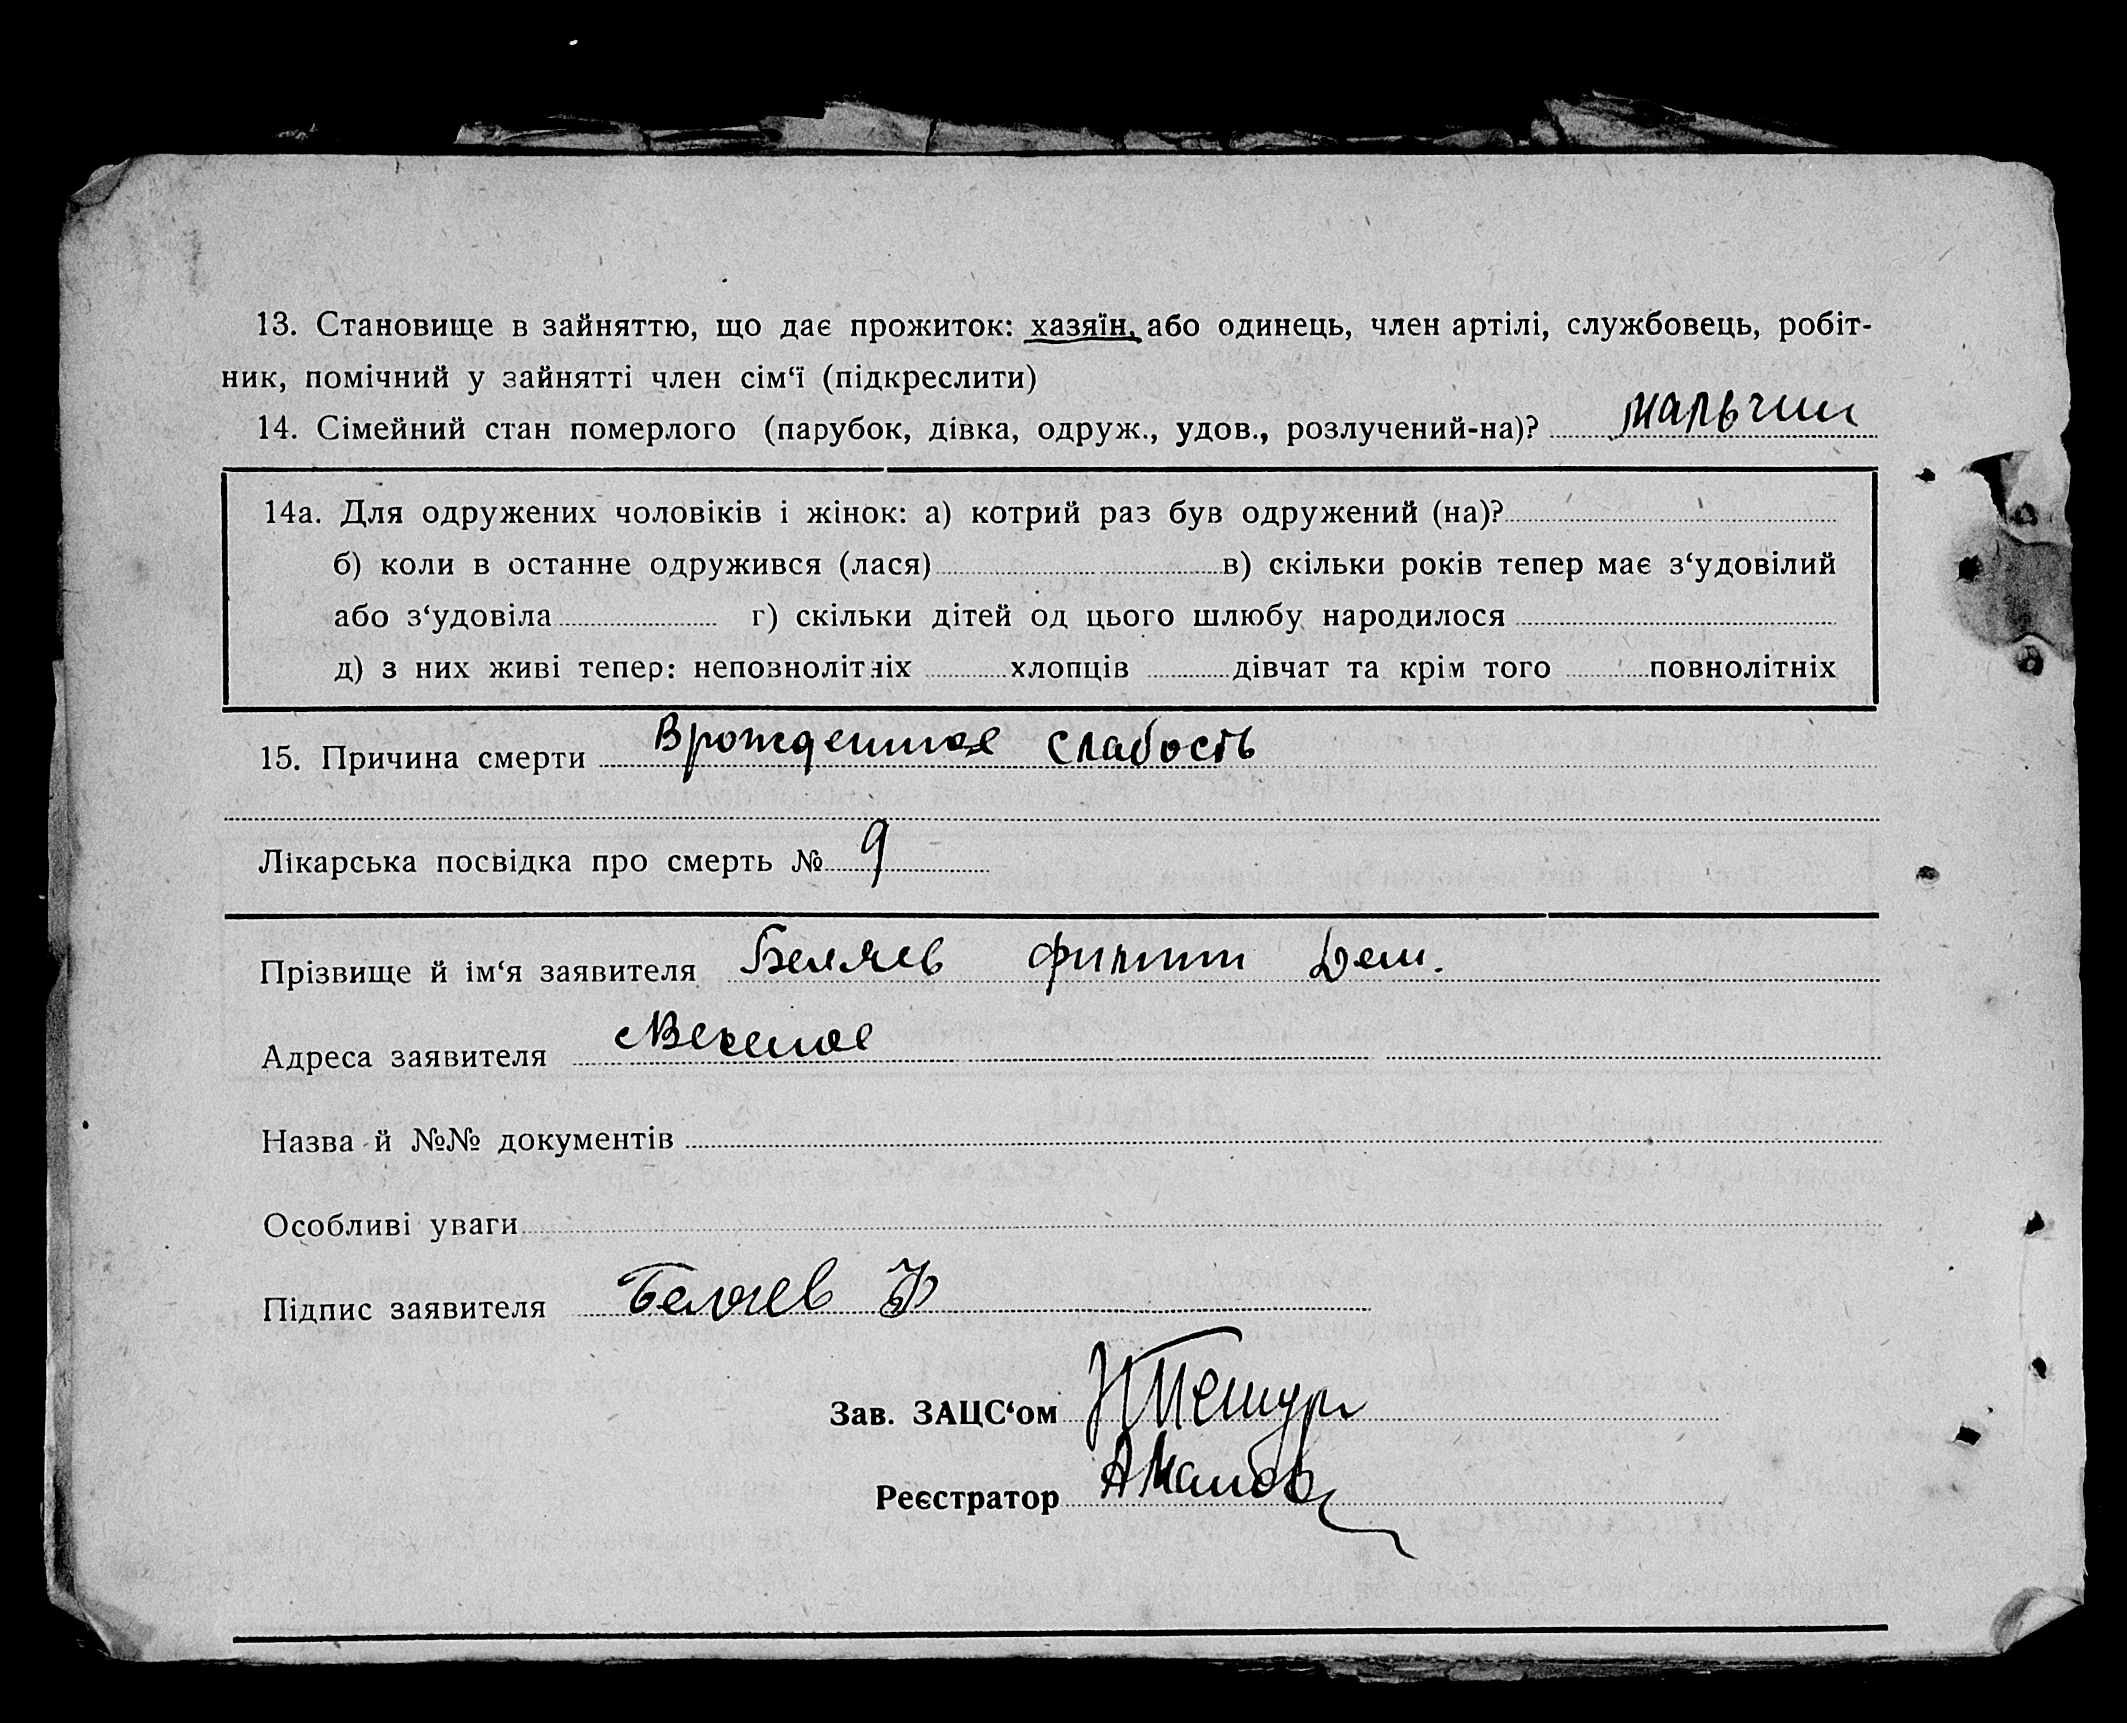 13. Становище в зайняттю, що дає прожиток: хазяїн, або одинець, член артілі, службовець, робіт-
ник, помічний у зайнятті член сім‘ї (підкреслити)
14. Сімейний стан померлого (парубок, дівка, одруж., удов., розлучений-на)?
14а. Для одружених чоловіків і жінок: а) котрий раз був одружений (на)?
б) коли в останне одружився (лася) в) скільки років тепер має з‘удовілий
або з‘удовіла г) скільки дітей од цього шлюбу народилося
д) з них живі тепер: неповнолітніх хлопців дівчат та крім того повнолітніх
15. Причина смерти Врожденная слабость
Лікарська посвідка про смерть № 9
Прізвище й ім‘я заявителя Беляев Филипп Дем.
Адреса заявителя
Назва й №№ документів
Особливі уваги
Підпис заявителя Беляев Ф
Зав. ЗАЦС‘ом
Реєстратор